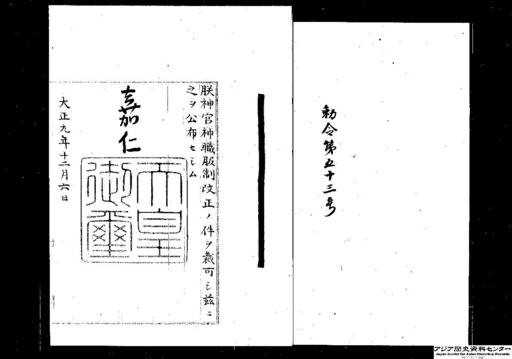 勅令第五十三号
朕神宮神職服制改正ノ件ヲ裁可シ茲ニ
之ヲ公布セシム
嘉仁
天皇
御璽
大正九年十二月六日
アジア歴史資料センター
Japan Center for Asian Historical Records